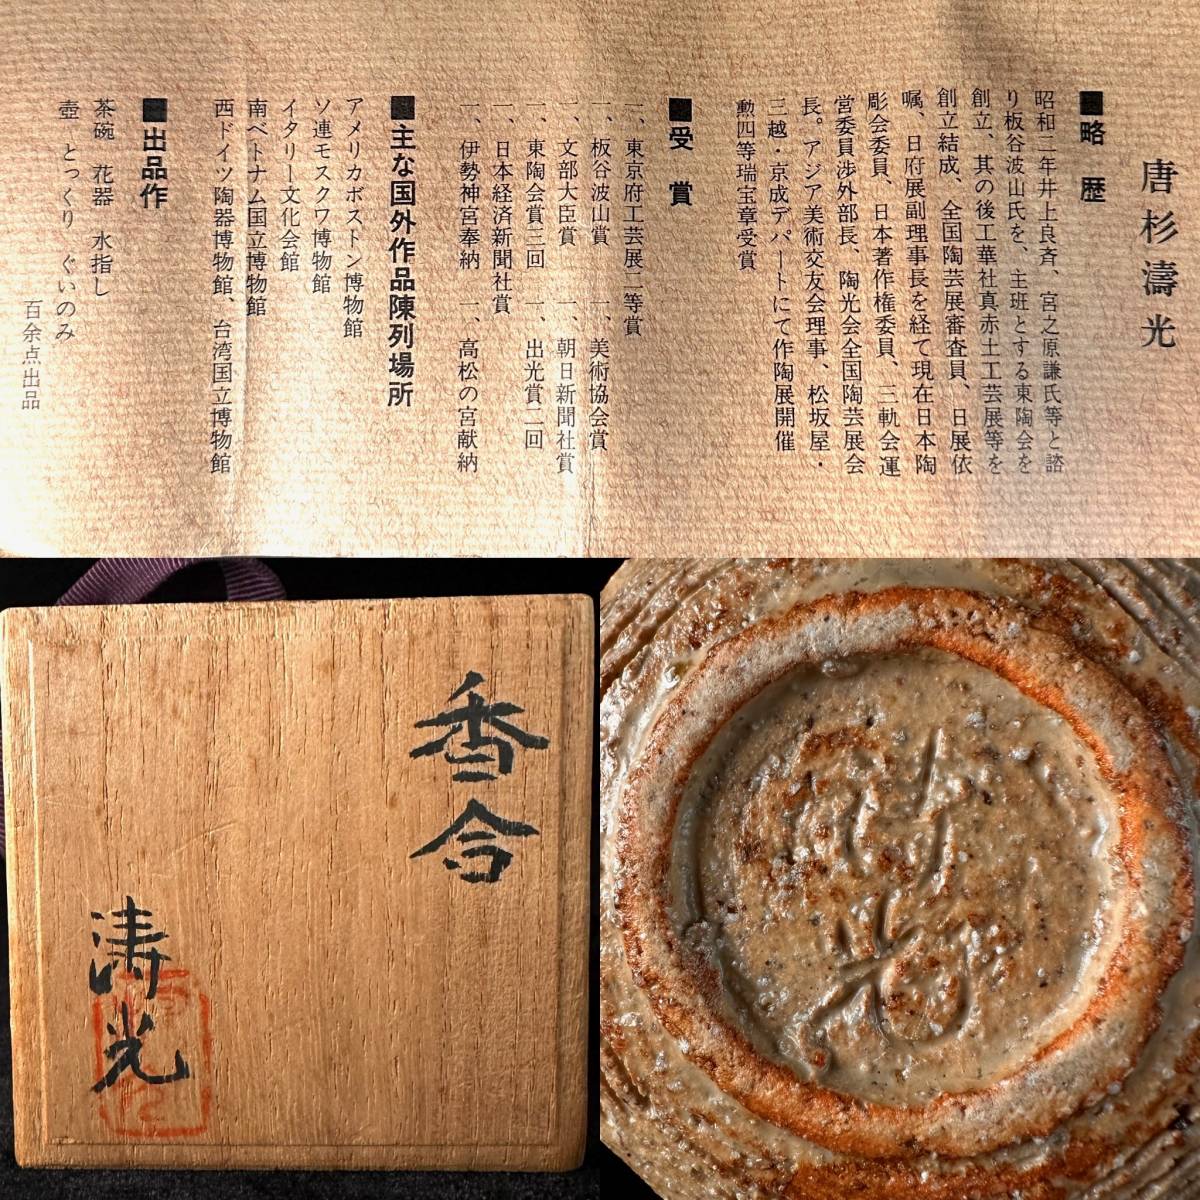 唐杉濤光
■略 歴
昭和二年井上良斉、宮之原謙氏等と諮
り板谷波山氏を、主班とする東陶会を
創立、其の後工華社真赤土工芸展等を
創立結成、全国陶芸展審査員、日展依
嘱、日府展副理事長を経て現在日本陶
彫会委員、日本著作権委員、三軌会運
営委員渉外部長、陶光会全国陶芸展会
長。アジア美術交友会理事、松坂屋・
三越・京成デパートにて作陶展開催
勲四等瑞宝章受賞
■受 賞
一、東京府工芸展二等賞
一、板谷波山賞 一、美術協会賞
一、文部大臣賞 一、朝日新聞社賞
一、東陶会賞三回 一、出光賞二回
一、日本経済新聞社賞
一、伊勢神宮奉納 一、高松の宮献納
■主な国外作品陳列場所
アメリカボストン博物館
ソ連モスクワ博物館
イタリー文化会館
南ベトナム国立博物館
西ドイツ陶器博物館、台湾国立博物館
■出品作
茶碗 花器 水指し
壺 とっくり ぐいのみ
百余点出品
香合
涛光
光